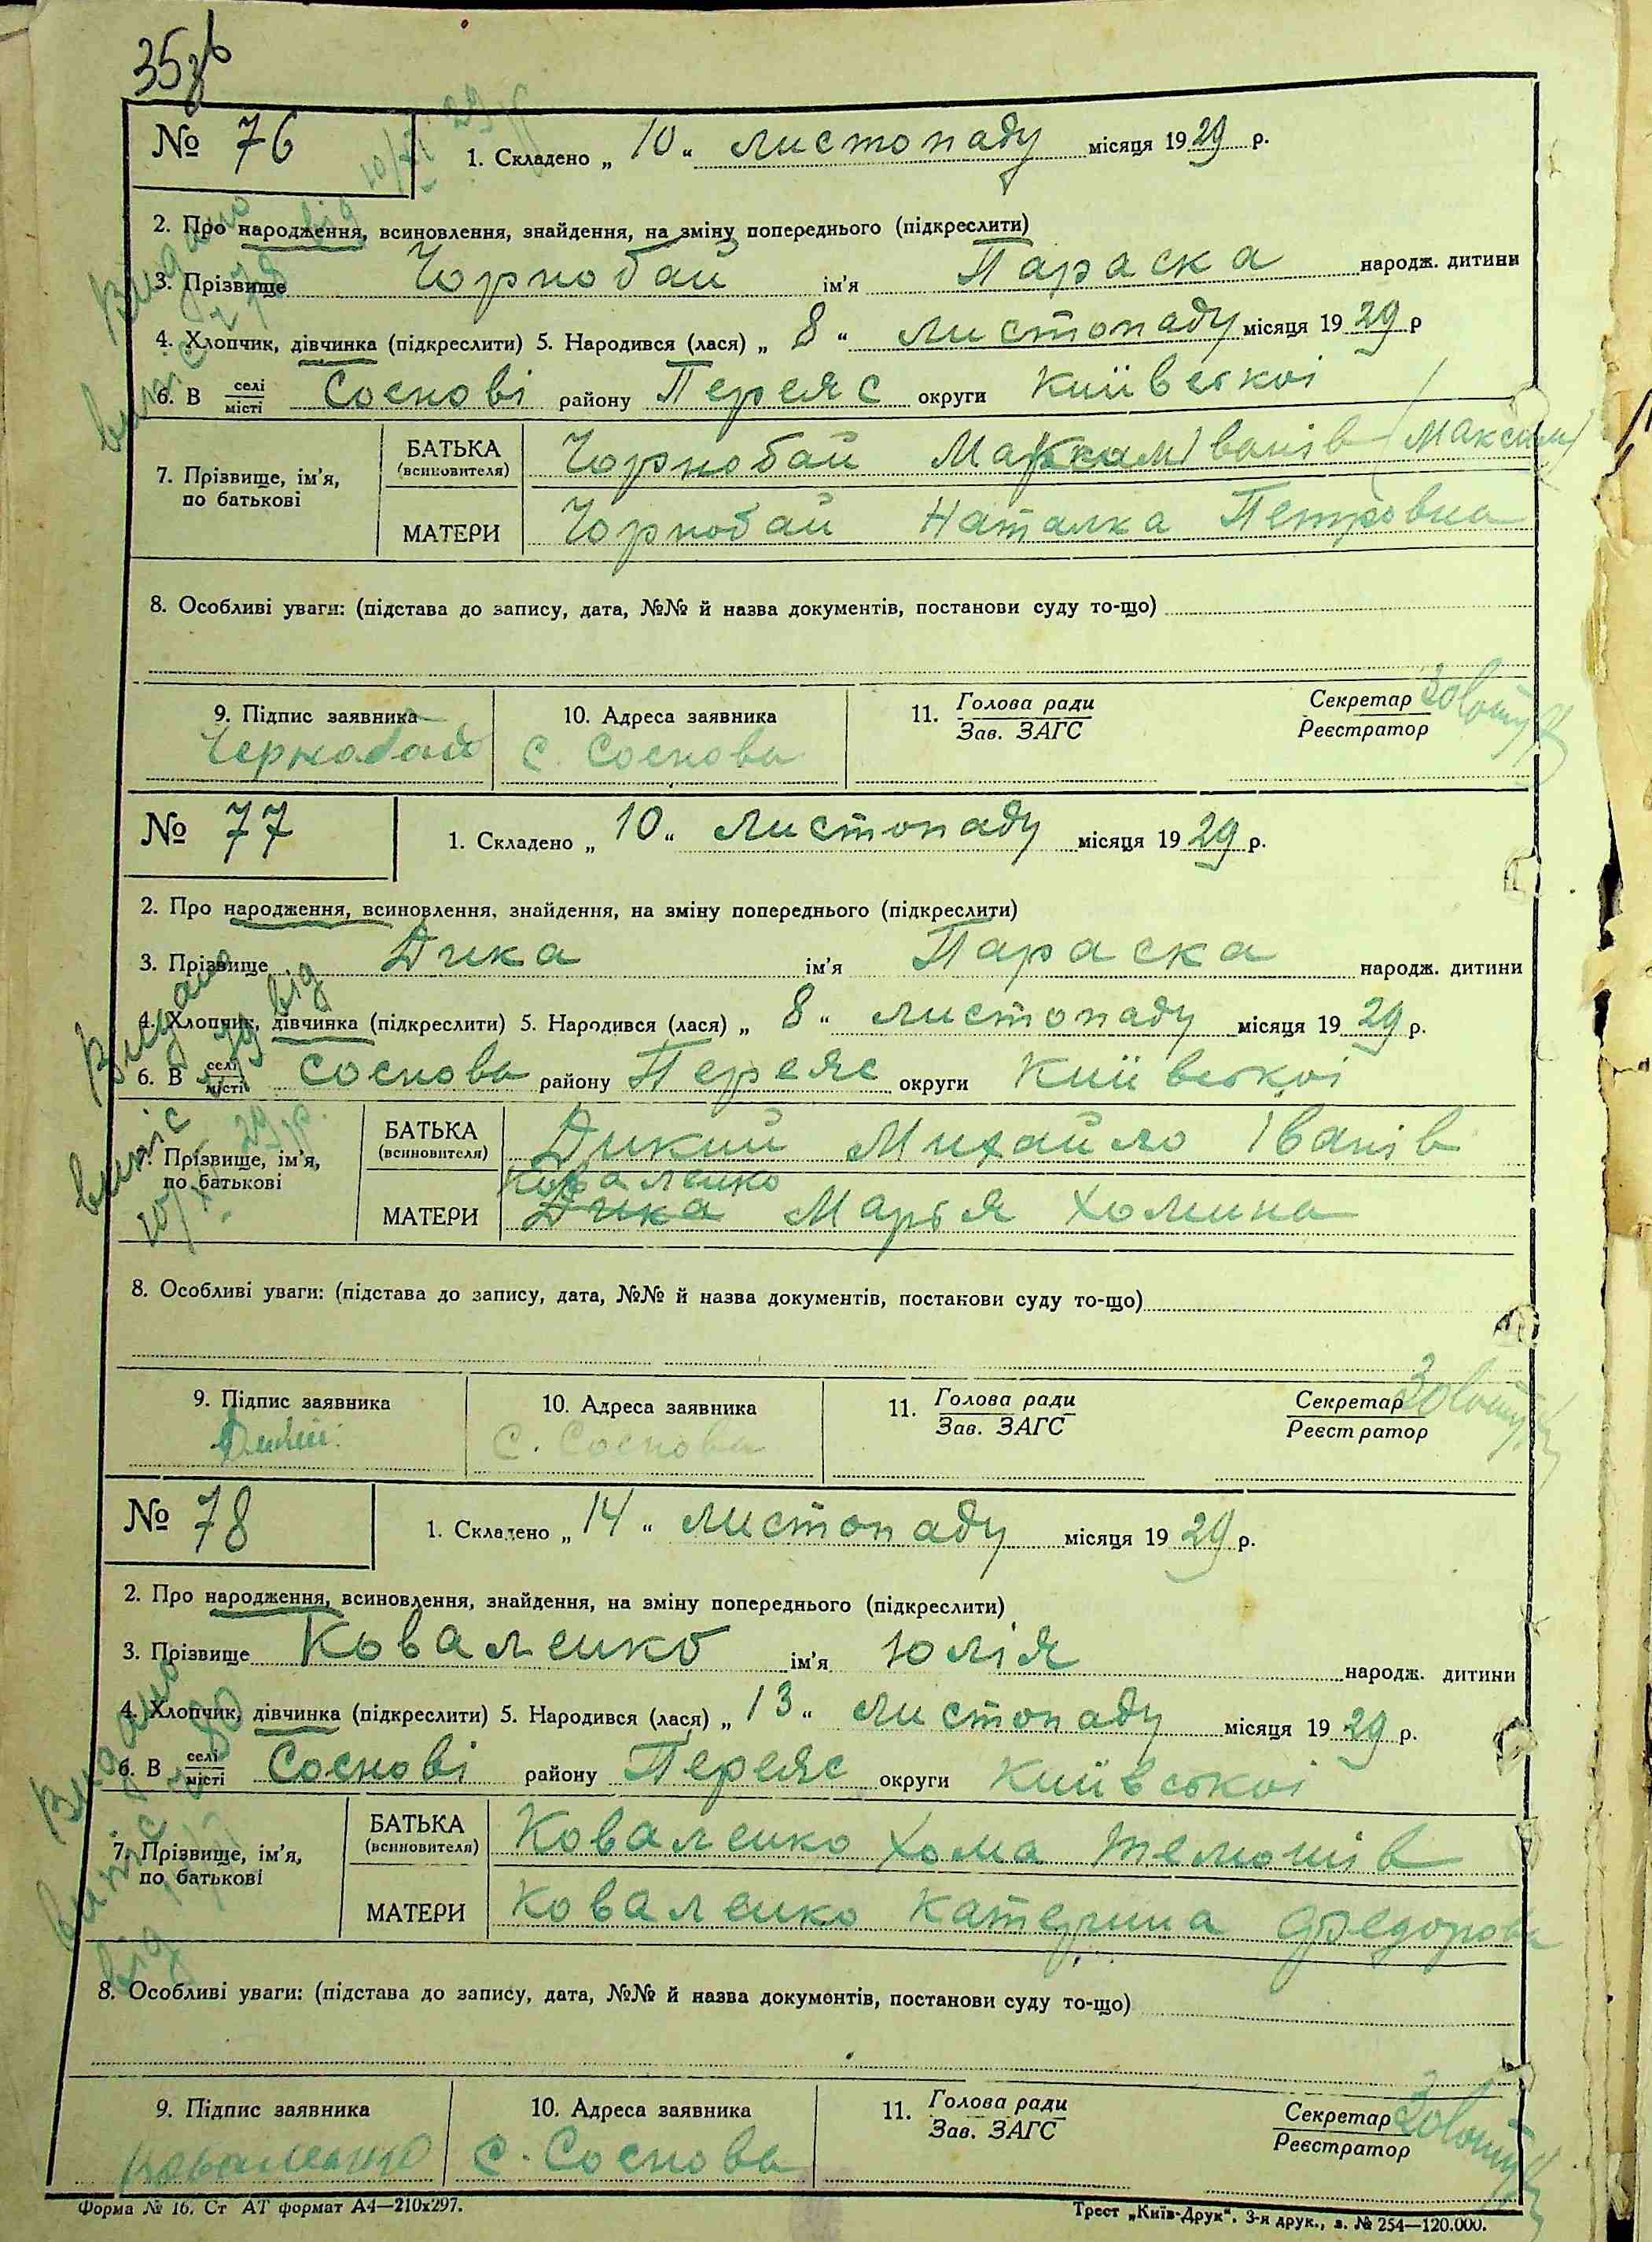 35зв
№ 76
1. Складено „ 10 “ листопаду місяця 1929 р.
2. Про народження, всиновлення, знайдення, на зміну попереднього (підкреслити)
3. Прізвище Чорнобай ім'я Параска народж. дитини
4. Хлопчик, дівчинка (підкреслити) 5. Народився (лася) „ 8 “ листопаду місяця 1929 р
6. В селі місті Соснові району Переяс округи Київської
7. Прізвище, ім'я, по батькові
БАТЬКА (всиновителя) Чорнобай Іванів (Максим)
МАТЕРИ Чорнобай Наталка Петровна
8. Особливі уваги: (підстава до запису, дата, №№ й назва документів, постанови суду то-що)
9. Підпис заявника
10. Адреса заявника
11. Голова ради
Зав. ЗАГС
Секретар
Реєстратор
Чернобай
с. Соснова
Видано
випис
від
№ 77
1. Складено „ 10 “ листопаду місяця 1929 р.
2. Про народження, всиновлення, знайдення, на зміну попереднього (підкреслити)
3. Прізвище Дика ім'я Параска народж. дитини
4. Хлопчик, дівчинка (підкреслити) 5. Народився (лася) „ 8 “ листопаду місяця 1929 р.
6. В селі місті Соснова району Переяс округи Київської
7. Прізвище, ім'я, по батькові
БАТЬКА (всиновителя) Дикий Михайло Іванів
Коваленко
МАТЕРИ Дика Марья Хомина
8. Особливі уваги: (підстава до запису, дата, №№ й назва документів, постанови суду то-що)
9. Підпис заявника
10. Адреса заявника
11. Голова ради
Зав. ЗАГС
Секретар
Реєстратор
с. Соснова
Видано
випис
від
№ 78
1. Складено „ 14 “ листопаду місяця 1929 р.
2. Про народження, всиновлення, знайдення, на зміну попереднього (підкреслити)
3. Прізвище Коваленко ім'я Юлія народж. дитини
4. Хлопчик, дівчинка (підкреслити) 5. Народився (лася) „ 13 “ листопаду місяця 1929 р.
6. В селі місті Соснові району Переяс округи Київської
7. Прізвище, ім'я, по батькові
БАТЬКА (всиновителя) Коваленко Хома
МАТЕРИ Коваленко Катерина Федоровн
8. Особливі уваги: (підстава до запису, дата, №№ й назва документів, постанови суду то-що)
9. Підпис заявника
10. Адреса заявника
11. Голова ради
Зав. ЗАГС
Секретар
Реєстратор
Коваленко
с. Соснова
Видано
випис
від
Форма № 16. Ст АТ формат А4—210х297.
Трест „Київ-Друк“. 3-я друк., з. № 254—120.000.